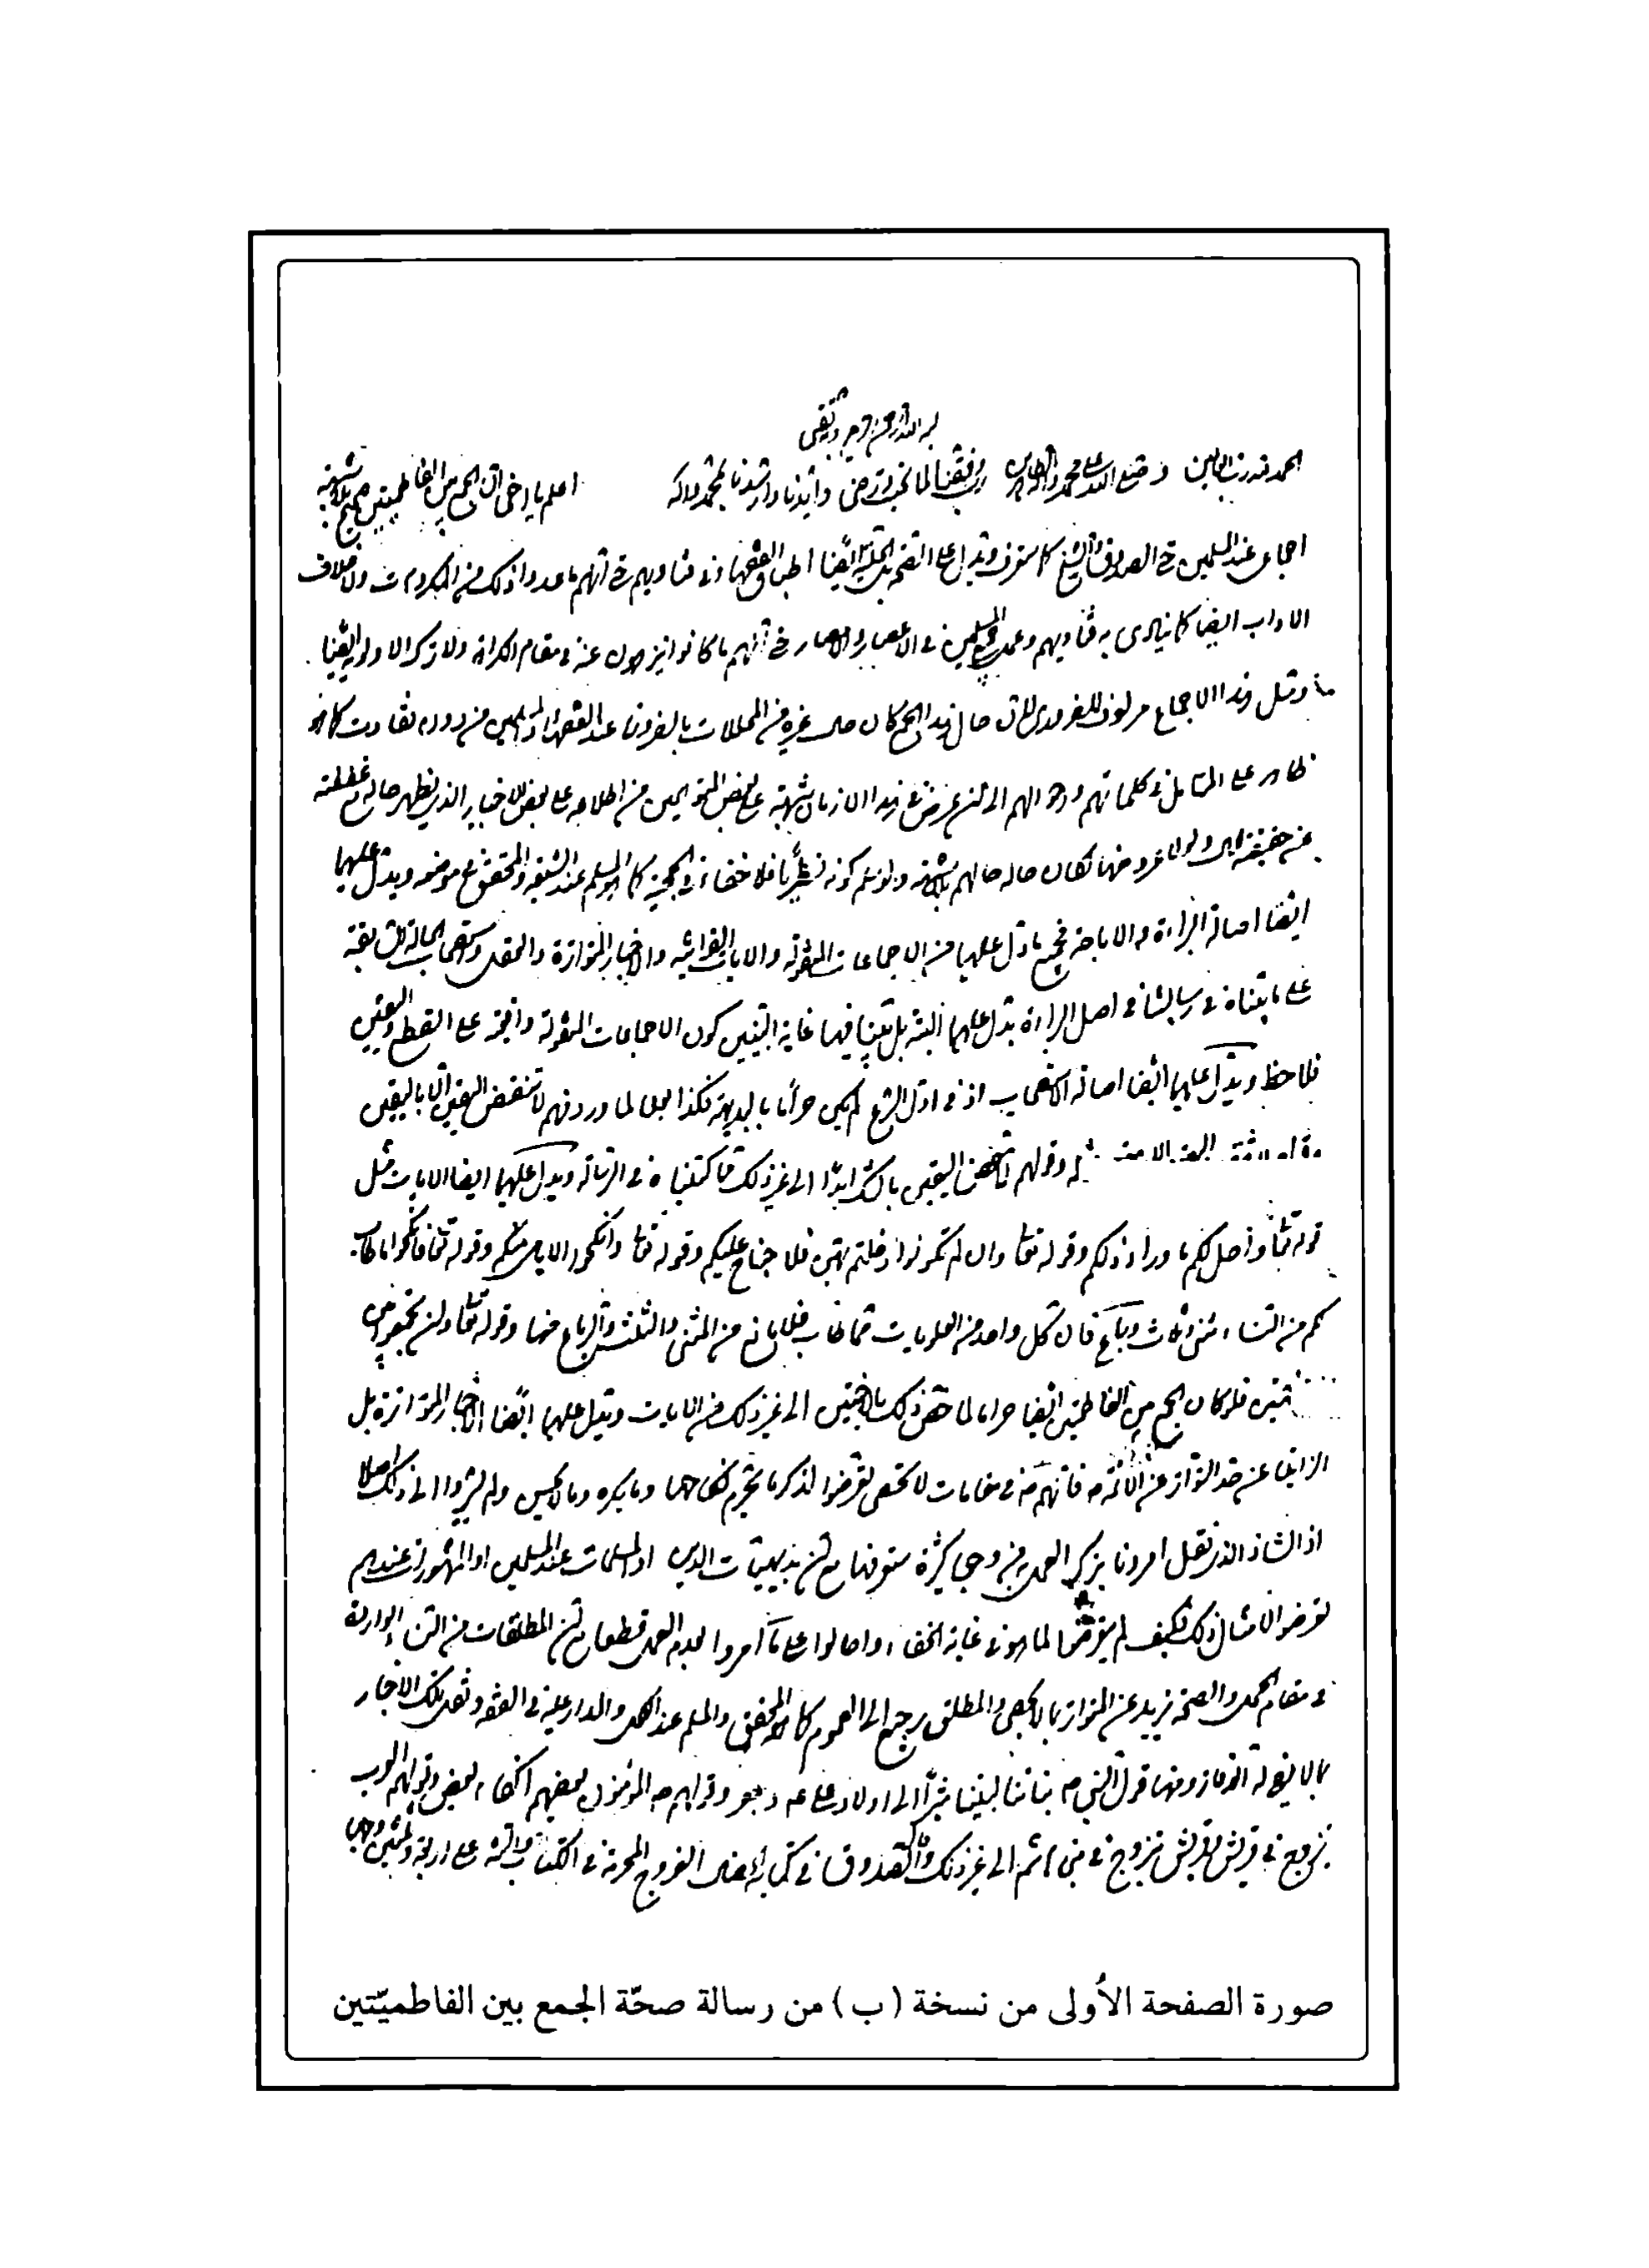 بسم الله الرحمن الرحيم وبه ثقتي
الحمد لله رب العالمين وصلى الله على محمد وآله الطاهرين رب وفقنا لما تحب وترضى وأيدنا وأرشدنا بمحمد وآله اعلم يا أخي ان الجمع بين الفاطميتين صحيح بلا شبهة
اجماعى عند المسلمين حتى الصدوق والشيخ كما ستعرف ويدل على الصحة بل الحلية أيضا اطباق الفقهاء في فتاويهم حتى أنهم ما عدوا ذلك من المكروهات ولا خلاف
الاداب ايضا كما ينادى به فتاويهم وعمل المسلمين في الاعصار والامصار حتى أنهم ما كانوا يتنزهون عنه في مقام الكراهة ولا ترك الاولى أيضا
ومثل هذا الاجماع مرادف للضرورى لان حال هذا الجمع كان حال غيره من المحللات بالضرورة عند الفقهاء والمسلمين من دون تفاوت كما هو
ظاهر على المتأمل في كلماتهم واحوالهم الى ان عرض في هذا الازمان شبهة على بعض المتوهمين من اطلاعه على بعض الاخبار الذى يظهر حاله مع غفلته
عن حقيقة الحال ولولا عروضها لكان حاله حالهم بلا شبهة ولو سلم كونه نظريا فلا خفاء في الحجية كما هو المسلم عند الشيعة والمحقق في موضعه ويدل عليها
ايضا اصالة البراءة والاباحة فجميع ما دل عليها من الاجماعات المنقولة والايات القرانية والاخبار المتواترة والعقل واستصحاب الحالة السابقة
على ما بيناه في رسالتنا في اصل البراءة يدل عليها البتة بل بينا فيها غاية التبيين كون الاجماعات المنقولة واقعة على القطع واليقين
فلاحظ ويدل عليها ايضا اصالة الاستصحاب اذ في اول الشرع لم يكن حراما بالبديهة فكذا الحال لما ورد منهم لا تنقض اليقين الا باليقين
وقولهم لا تنقض اليقين بالشك ابدا الى غير ذلك مما كتبناه في الرسالة ويدل عليها ايضا الايات مثل
قوله تعالى واحل لكم ما وراء ذلكم وقوله تعالى وان لم تكونوا دخلتم بهن فلا جناح عليكم وقوله تعالى وانكحوا الايامى منكم وقوله تعالى فانكحوا ما طاب
لكم من النساء مثنى وثلاث ورباع فان كل واحد من العلويات مما طاب فلا مانع من المثنى والثلث والرباع منها وقوله تعالى وان تجمعوا بين
الاختين فلو كان الجمع بين الفاطميتين ايضا حراما لما خص ذلك بالاختين الى غير ذلك من الايات ويدل عليها ايضا الاخبار المتواترة بل
الزايد عن حد التواتر عن الأئمة ع فانهم ع في مقامات لا تحصى تعرضوا لذكر ما يحرم نكاحها وما يكره وما لا يحسن ولم يشيروا الى ذلك اصلا
اذ الشاذ الذى نقل امرونا بترك العمل به من وجوه كثيرة ستعرفها مع ان بديهيات الدين او المسلمات عند المسلمين او المشهورات عندهم
تعرضوا لامثال ذلك فكيف لم يتعرضوا لما هو في غاية الخفاء واحالوا على ما أمروا بعدم العمل قطعا مع ان المطلقات من النساء الواردة
في مقام الحل والصحة تزيد عن التواتر بما لا يحصى والمطلق يرجع الى العموم كما هو المحقق والمسلم عند الكل والمدار عليه في الفقه ونقل تلك الاخبار
مما لا يفى له الدفاتر ومنها قول النبي ص بناتنا لبنينا مشيرا الى اولاد على ع وجعفر وقولهم ع المؤمنون بعضهم اكفاء بعض وقولهم العرب
تتزوج في قريش وقريش تتزوج في بني هاشم الى غير ذلك والصدوق في كتابه الخصال الفروج المحرمة في الكتاب والسنة على اربعة وثلثين وجها
صورة الصفحة الأولى من نسخة (ب) من رسالة صحّة الجمع بين الفاطميّتين